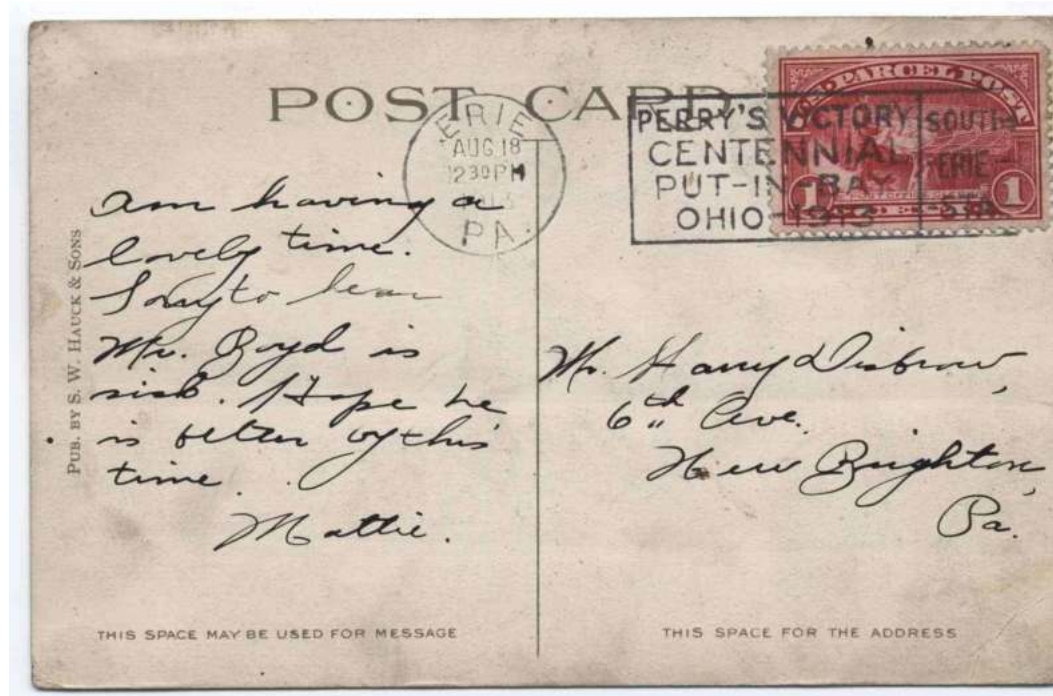 POST CARD
ERIE
AUG 18
12 30 PM
PA.
PERRY'S VICTORY
CENTENNIAL
PUT-IN-BAY
OHIO-1913
SOUTH
ERIE
STA.
U.S. PARCEL POST
1 1
am having a
lovely time.
Sorry to hear
Mr. Boyd is
sick. Hope he
is better by this
time.
Mattie.
Mr. Harry Disbrow,
6th Ave.
New Brighton,
Pa.
PUB. BY S. W. HAUCK & SONS
THIS SPACE MAY BE USED FOR MESSAGE
THIS SPACE FOR THE ADDRESS